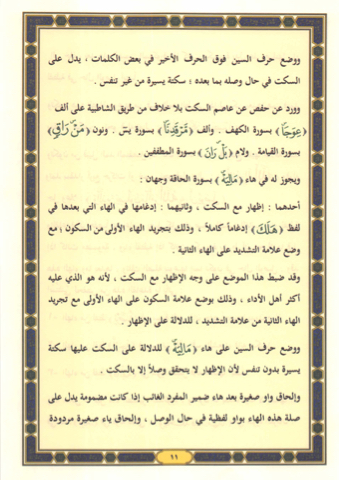 ووضع حرف السين فوق الحرف الأخير في بعض الكلمات ، يدل على
السكت في حال وصله بما بعده ؛ سكتة يسيرة من غير تنفس .
وورد عن حفص عن عاصم السكت بلا خلاف من طريق الشاطبية على ألف
﴿عِوَجَاۜ﴾ بسورة الكهف . وألف ﴿مَرْقَدِنَاۜ﴾ بسورة يسٓ . ونون ﴿مَنْۜ رَاقٍ﴾
بسورة القيامة . ولام ﴿بَلْۜ رَانَ﴾ بسورة المطففين .
ويجوز له في هاء ﴿مَالِيَهْۜ﴾ بسورة الحاقة وجهان :
أحدهما : إظهار مع السكت ، وثانيهما : إدغامها في الهاء التي بعدها في
لفظ ﴿هَلَكَ﴾ إدغاماً كاملاً ، وذلك بتجريد الهاء الأولى من السكون ؛ مع
وضع علامة التشديد على الهاء الثانية .
وقد ضبط هذا الموضع على وجه الإظهار مع السكت ، لأنه هو الذي عليه
أكثر أهل الأداء ، وذلك بوضع علامة السكون على الهاء الأولى مع تجريد
الهاء الثانية من علامة التشديد ، للدلالة على الإظهار .
ووضع حرف السين على هاء ﴿مَالِيَهْۜ﴾ للدلالة على السكت عليها سكتة
يسيرة بدون تنفس لأن الإظهار لا يتحقق وصلاً إلا بالسكت .
وإلحاق واو صغيرة بعد هاء ضمير المفرد الغائب إذا كانت مضمومة يدل على
صلة هذه الهاء بواو لفظية في حال الوصل ، وإلحاق ياء صغيرة مردودة
١١